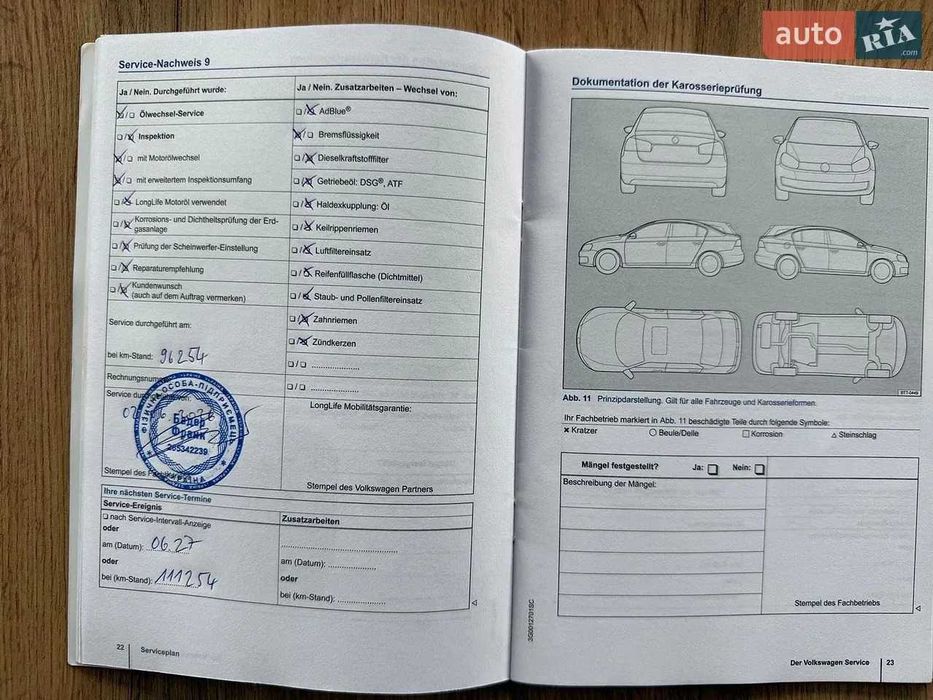 auto RIA .com
Service-Nachweis 9
Ja / Nein. Durchgeführt wurde:
Ölwechsel-Service
Inspektion
mit Motorölwechsel
mit erweitertem Inspektionsumfang
LongLife Motoröl verwendet
Korrosions- und Dichtheitsprüfung der Erd-
gasanlage
Prüfung der Scheinwerfer-Einstellung
Reparaturempfehlung
Kundenwunsch
(auch auf dem Auftrag vermerken)
Service durchgeführt am:
bei km-Stand: 96254
Service
ФІЗИЧНА ОСОБА-ПІДПРИЄМЕЦЬ
Бадер
Франк
265342239
Stempel des
Ja / Nein. Zusatzarbeiten – Wechsel von:
AdBlue®
Bremsflüssigkeit
Dieselkraftstofffilter
Getriebeöl: DSG®, ATF
Haldexkupplung: Öl
Keilrippenriemen
Luftfiltereinsatz
Reifenfüllflasche (Dichtmittel)
Staub- und Pollenfiltereinsatz
Zahnriemen
Zündkerzen
LongLife Mobilitätsgarantie:
Stempel des Volkswagen Partners
Ihre nächsten Service-Termine
Service-Ereignis
nach Service-Intervall-Anzeige
oder
am (Datum): 06.27
oder
bei (km-Stand): 111254
Zusatzarbeiten
am (Datum):
oder
bei (km-Stand):
22 Serviceplan
Dokumentation der Karosserieprüfung
Abb. 11 Prinzipdarstellung. Gilt für alle Fahrzeuge und Karosserieformen.
Ihr Fachbetrieb markiert in Abb. 11 beschädigte Teile durch folgende Symbole:
Kratzer Beule/Delle Korrosion Steinschlag
Mängel festgestellt? Ja: Nein:
Beschreibung der Mängel:
Stempel des Fachbetriebs
3G0012701SC
Der Volkswagen Service 23